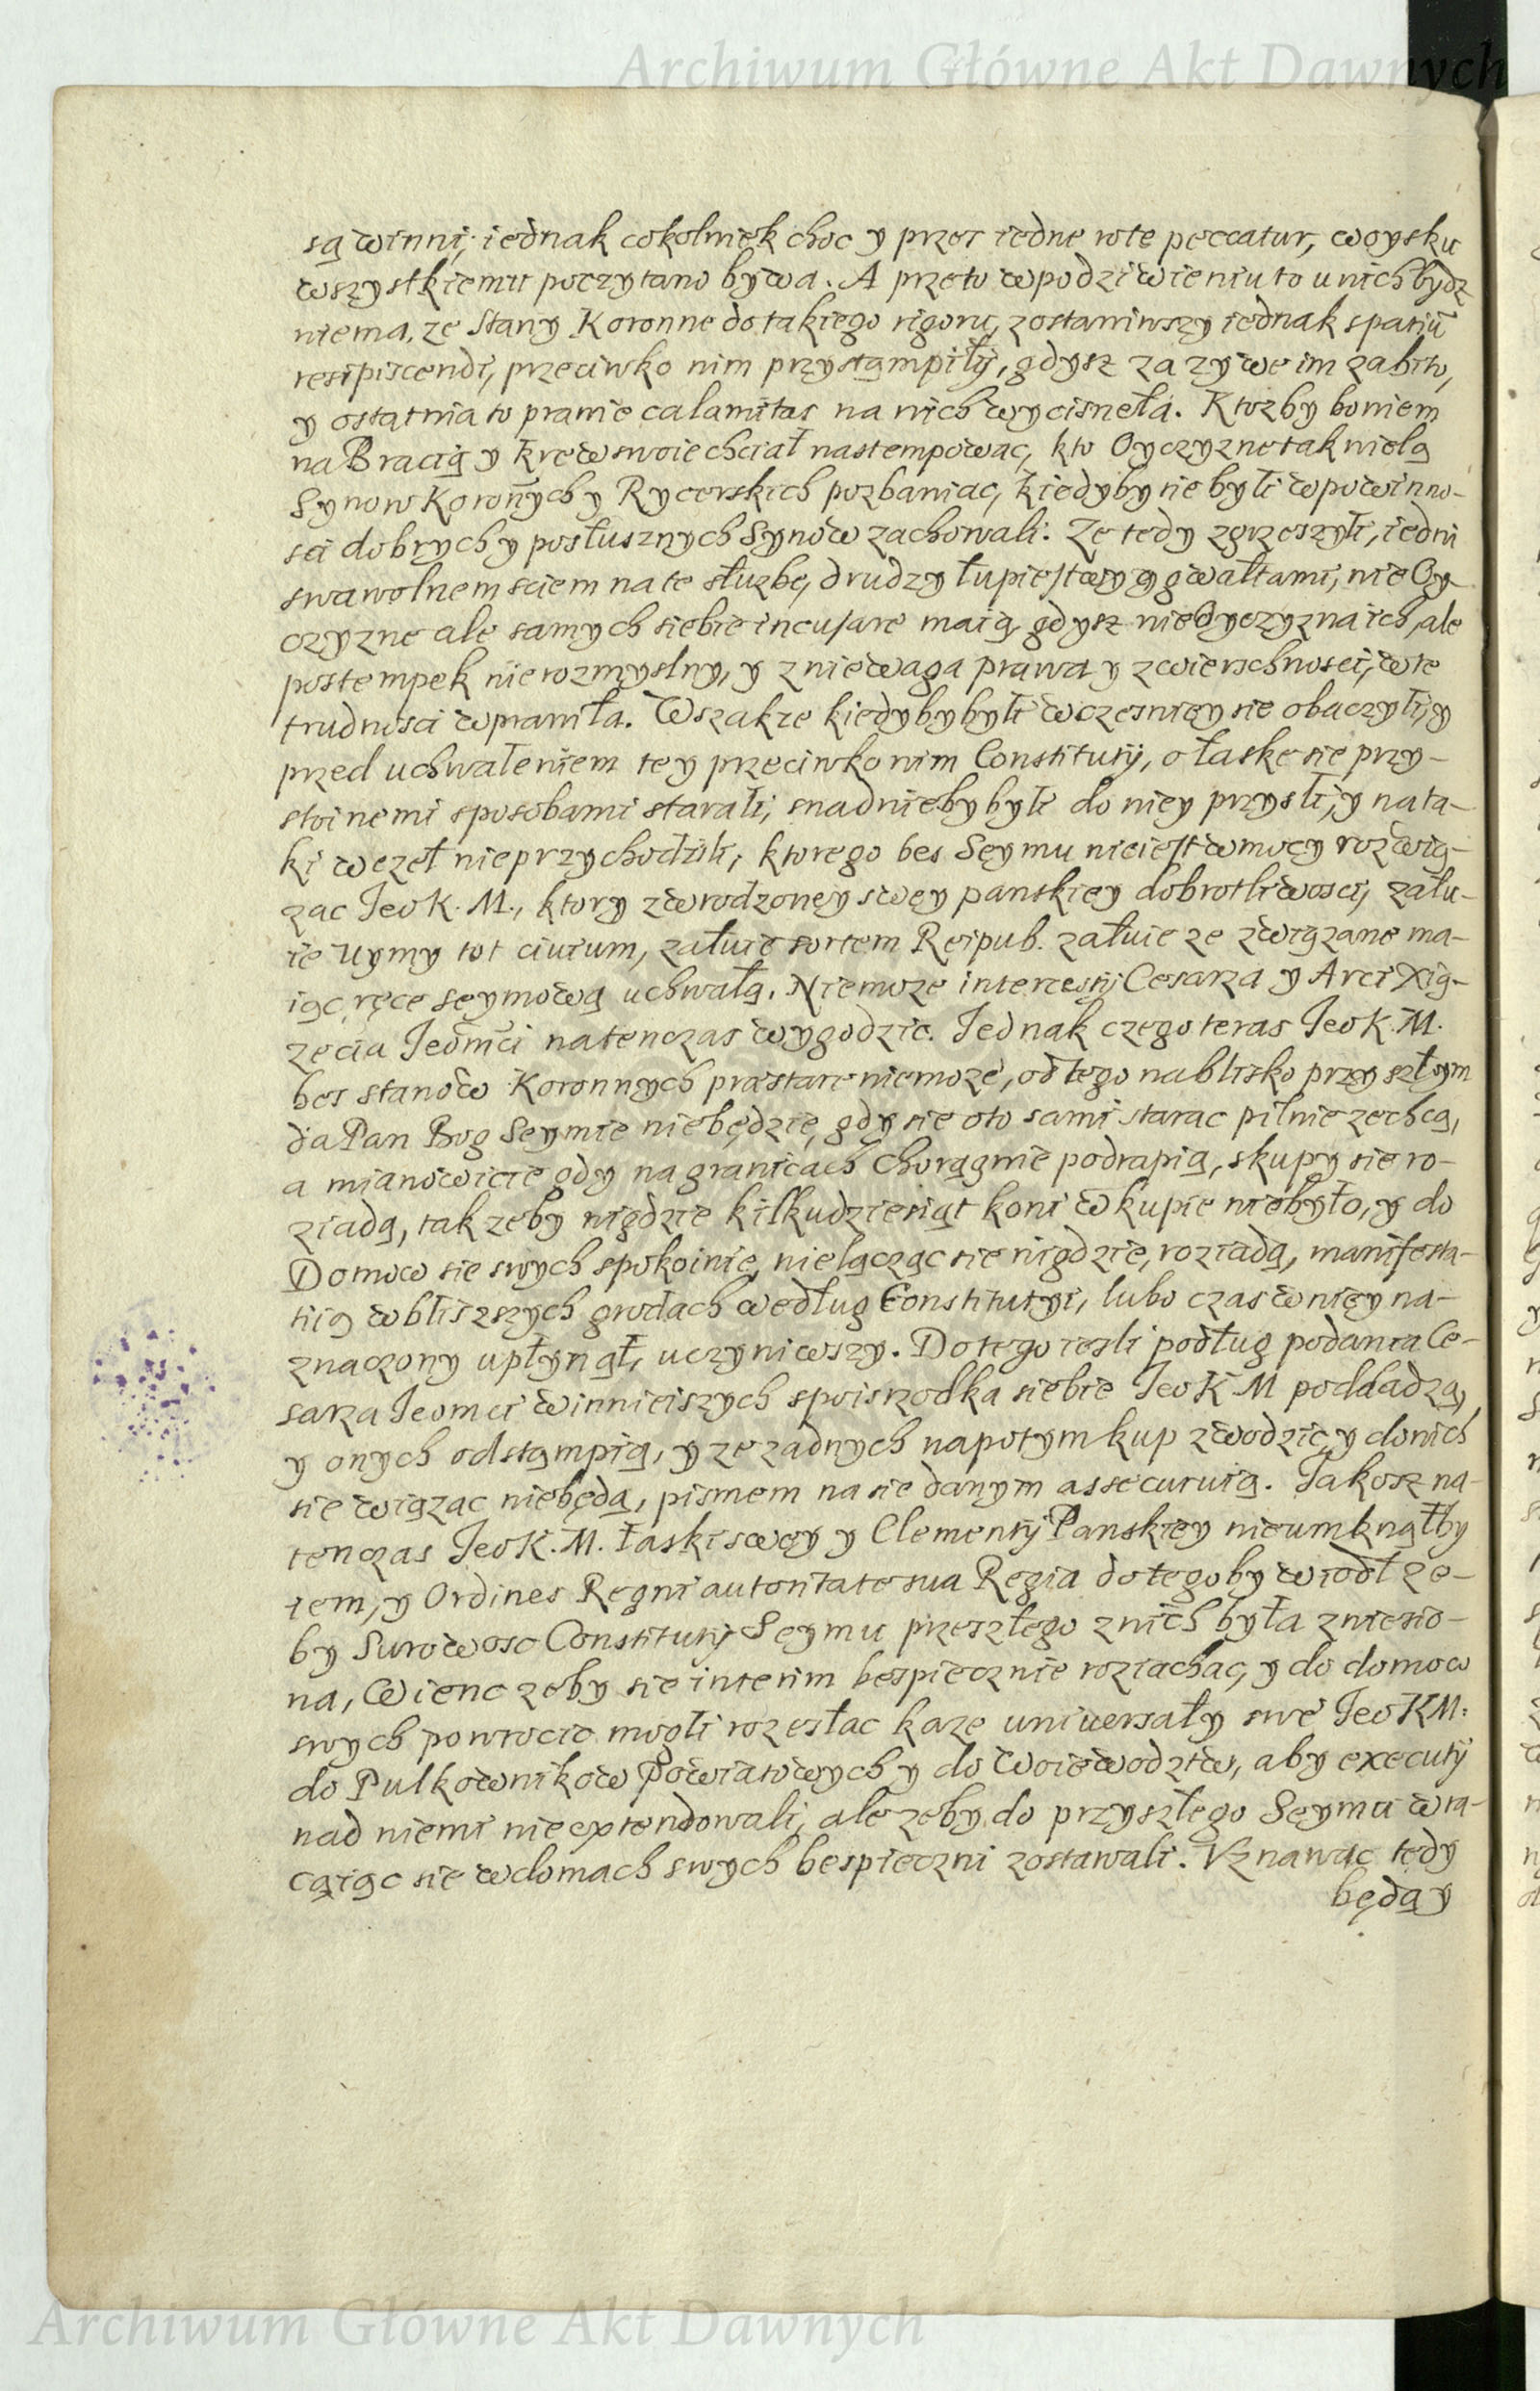 Archiwum Główne Akt Dawnych
są winni; iednak cokolwiek choc y przez iedne rote peccatur, woysku
wszystkiemu poczytano bywa. A przeto w podziwieniu to u nich bydz
niema, ze Stany Koronne do takiego rigoru, zostawiwszy iednak spatiū
resipiscendi, przeciwko nim przystąmpiły, gdysz za zywe im zabito,
y ostatnia to prawie calamitas na nich wycisneła. Ktozby bowiem
na Bracią y krew swoie chciał nastempowac, kto Oyczyzne tak wielą
Synow Koroñych y Rycerskich pozbawiac, kiedyby sie byli w powinno-
sci dobrych y posłusznych Synow zachowali. Ze tedy zgrzeszyli, iedni
swawolnem sciem na te słuzbę, drudzy łupiestwy y gwałtami, nie Oy-
czyzne ale samych siebie incusare maią, gdysz nie Oyczyzna ich, ale
postempek nierozmyslny, y zniewaga prawa y zwierschnosci, w te
trudnosci wprawiła. Wszakze kiedyby byli wczesniey sie obaczyli, y
przed uchwaleniem tey przeciwko nim Constitutij, o łaske sie przy-
stoinemi sposobami starali, snadnieby byli do niey przysli, y na ta-
ki węzeł nieprzychodzili, ktorego bes Seymu nieiest w mocy rozwią-
zac Jeo K. M., ktory z wrodzoney swey panskiey dobrotliwosci, zału-
ie uymy tot ciuium, załuie sortem Reipub. załuie ze związane ma-
iąc ręce seymową uchwałą. Niemoze intercessij Cesarza y Arci Xią-
zecia Jeo͞mci natenczas wygodzic. Jednak czego teras Jeo K. M.
bes stanow Koronnych præstare niemoze, od tego na blisko przyszłym
da Pan Bog Seymie niebędzie, gdy sie o to sami starac pilnie zechcą,
a mianowicie gdy na granicach chorągwie podrapią, skupy sie ro-
ziadą, tak zeby nigdzie kilkudziesiąt koni w kupie niebyło, y do
Domow sie swych spokoinie, nielącząc sie nigdzie, roziadą, manifesta-
tią w bliszszych grodach według Constitutyi, lubo czas w niey na-
znaczony upłynął, uczyniwszy. Do tego iesli podług podania Ce-
sarza Jeomci winnieiszych spoiszodka siebie Jeo K M poddadzą,
y onych odstąmpią, y ze zadnych napotym kup zwodzic, y do nich
sie wiązac niebędą, pismem na sie danym assecuruią. Jakosz na-
tenczas Jeo K. M. łaski swey y Clementij Panskiey nieumknąłby
iem, y Ordines Regni autoritate sua Regia do tego by wiodł ze-
by Surowosc Constitutij Seymu przeszłego z nich była zniesio-
na, Wienc zeby sie interim bespiecznie roziachac, y do domow
swych powrocic mogli rozesłac kaze uniuersały swe Jeo KM:
do Pulkownikow Powiatowych y do Woiewodztw, aby executij
nad niemi nieextendowali, ale zeby do przyszłego Seymu wra-
caiąc sie w domach swych bespieczni zostawali. Uznawac tedy
będą y
Archiwum Główne Akt Dawnych